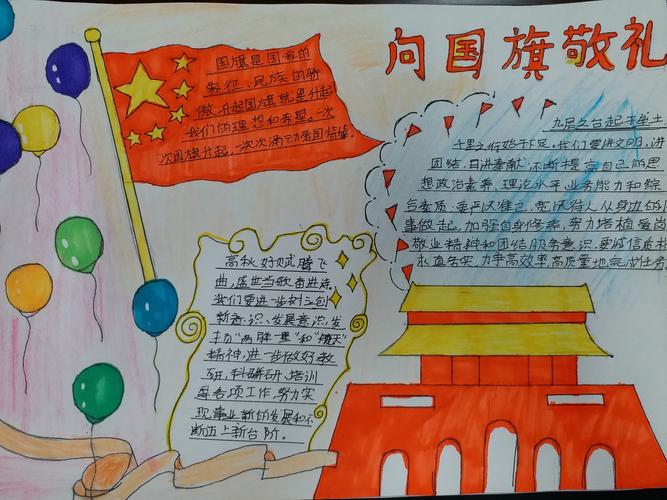 向国旗敬礼
国旗是国家的
象征、民族的骄
傲。升起国旗就是升起
我们的理想和希望。一次
次国旗升起，一次次涌动爱国情愫。
九层之台起于垒土
千里之行始于足，我们要讲文明，讲
团结，目进奉献，不断提高自己的思
想政治素养、理论水平、业务能力和综
合素质。要严以律己，宽以待人，从身边的小
事做起，加强自身修养，努力培植爱岗
敬业精神和团结服务意识，要诚信
求真务实，力争高效率、高质量地完成任务
高秋好赋腾飞
曲，盛世当歌奋进
我们要进一步树立创
新意识、发展意识，发
精神，进一步做好教
研、科研、培训
等各项工作，努力实
现事业新的发展和不
断迈上新台阶。